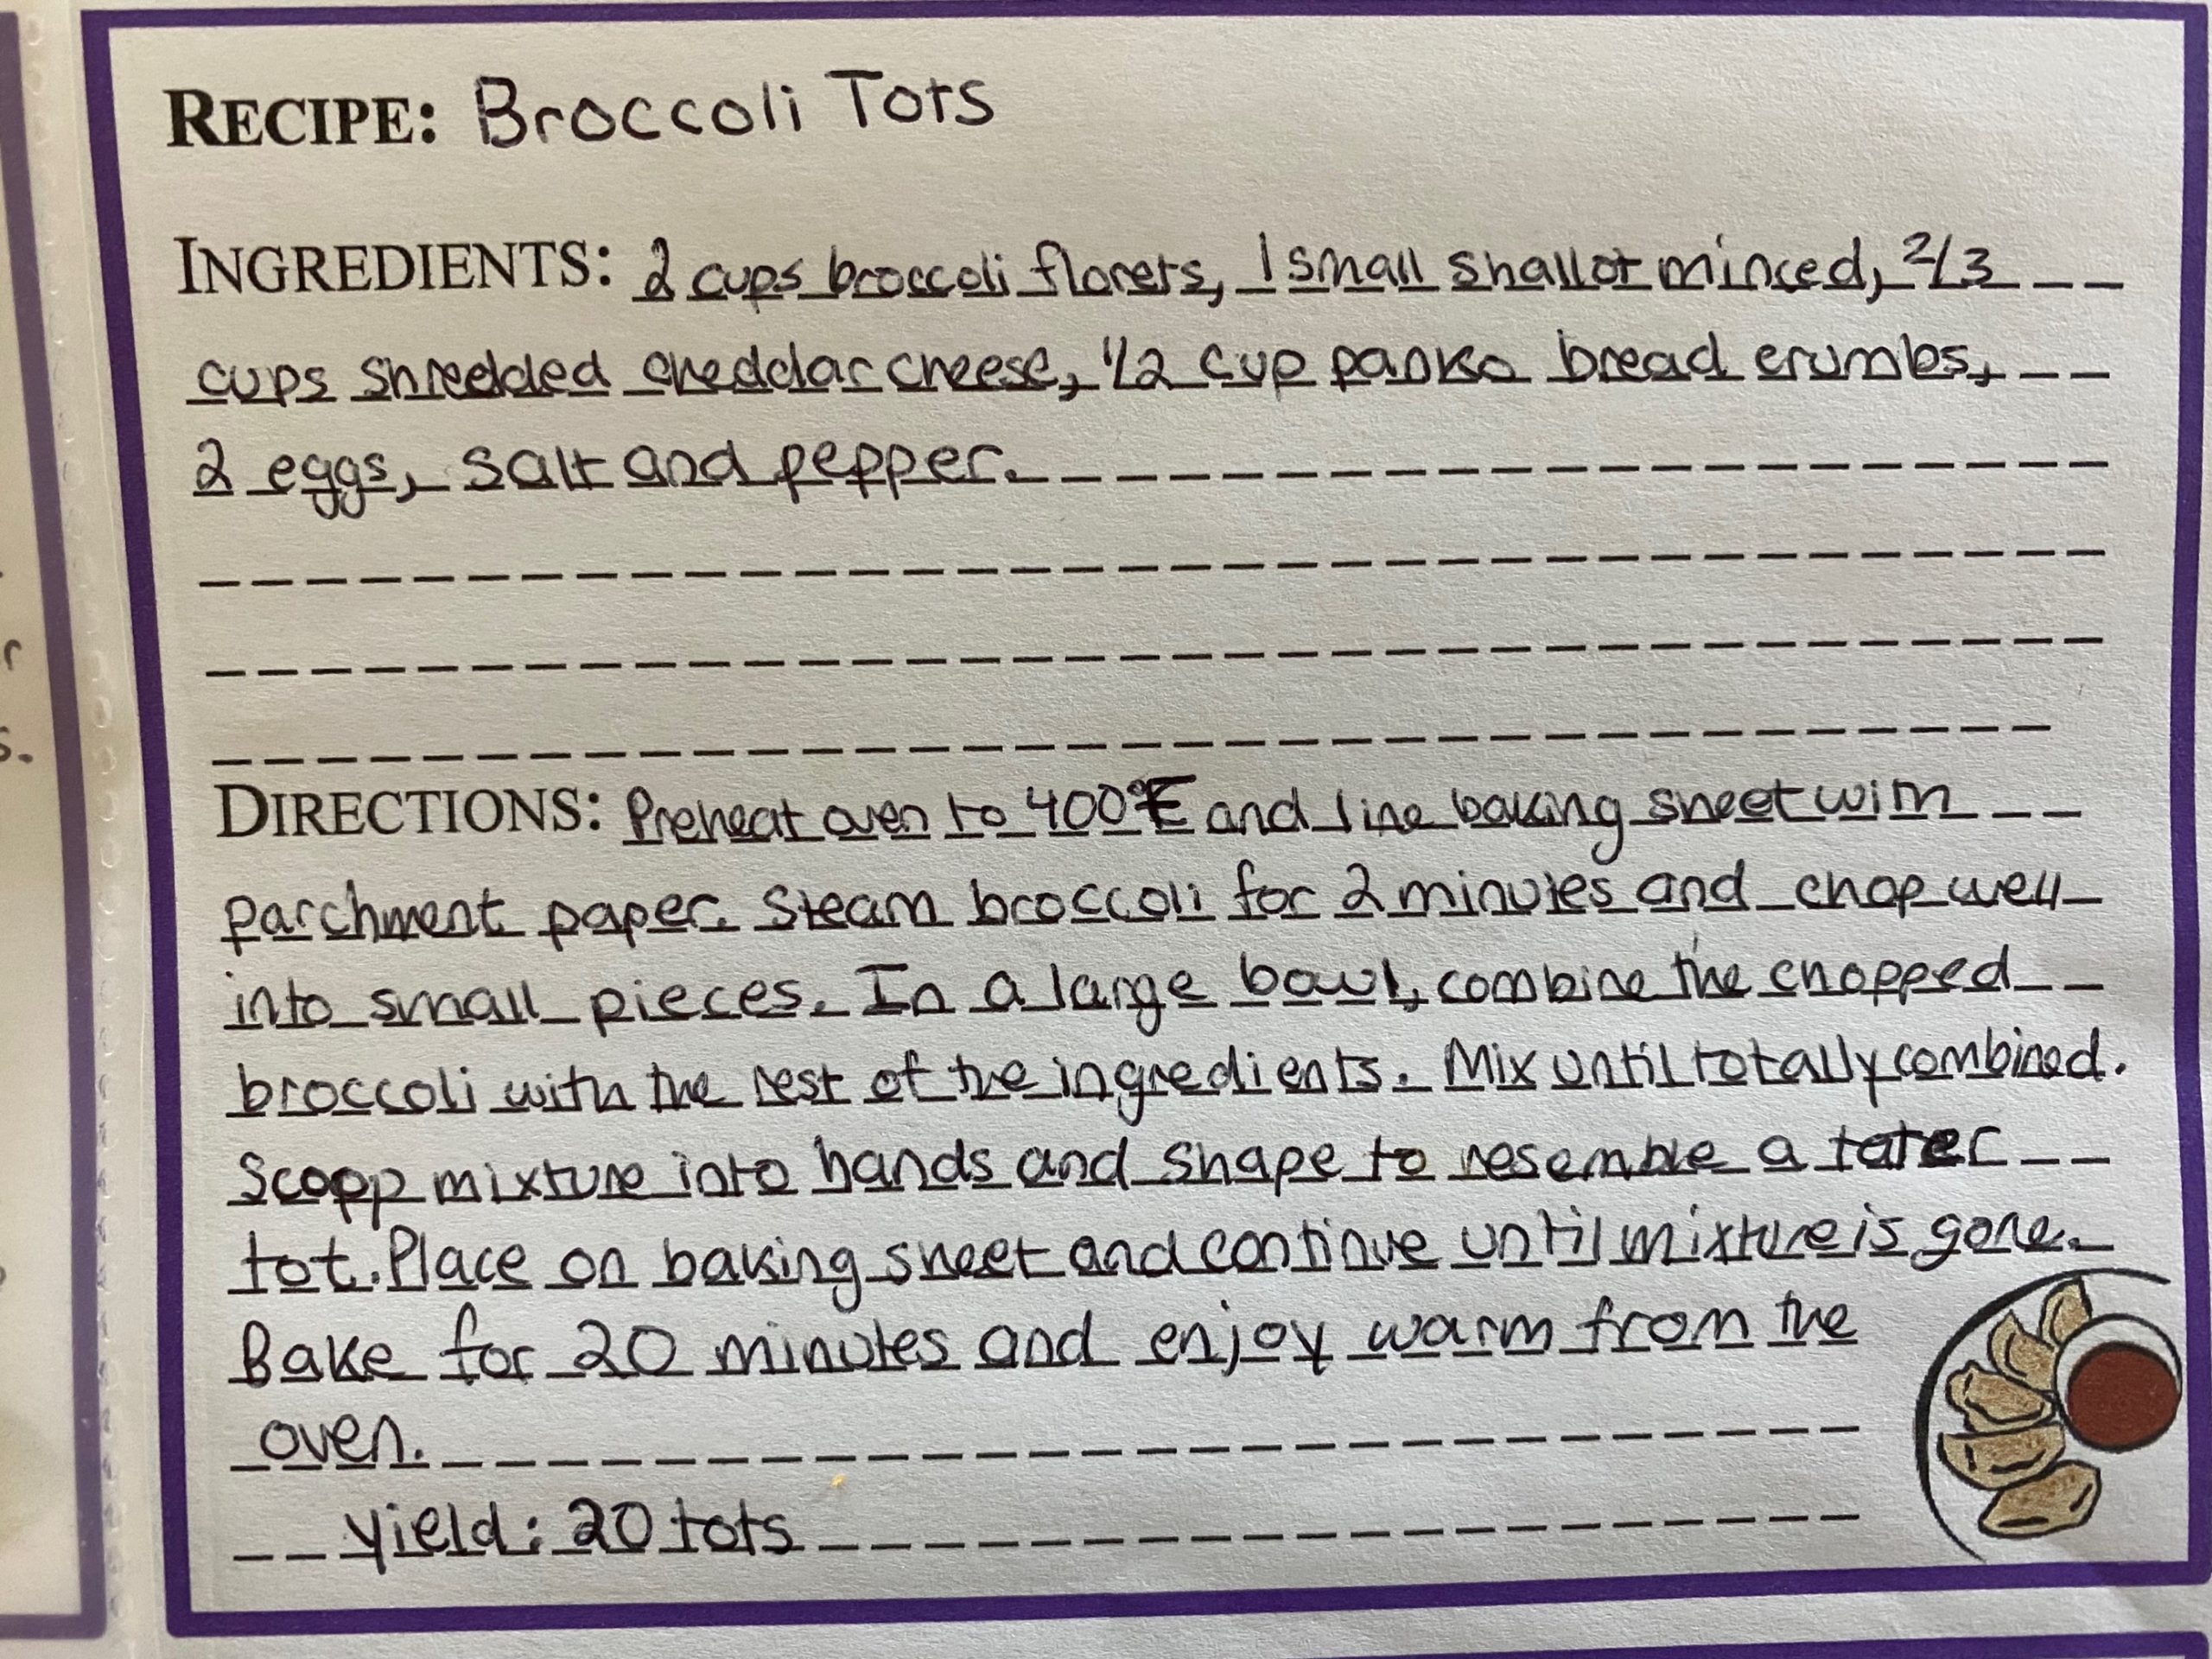 RECIPE: Broccoli Tots
INGREDIENTS: 2 cups broccoli florets, 1 small shallot minced, 2/3
cups shredded cheddar cheese, 1/2 cup panko bread crumbs,
2 eggs, salt and pepper.
DIRECTIONS: Preheat oven to 400°F and line baking sheet with
parchment paper. Steam broccoli for 2 minutes and chop well
into small pieces. In a large bowl, combine the chopped
broccoli with the rest of the ingredients. Mix until totally combined.
Scopp mixture into hands and shape to resemble a tater
tot. Place on baking sheet and continue until mixture is gone.
Bake for 20 minutes and enjoy warm from the
oven.
yield: 20 tots
r
s.